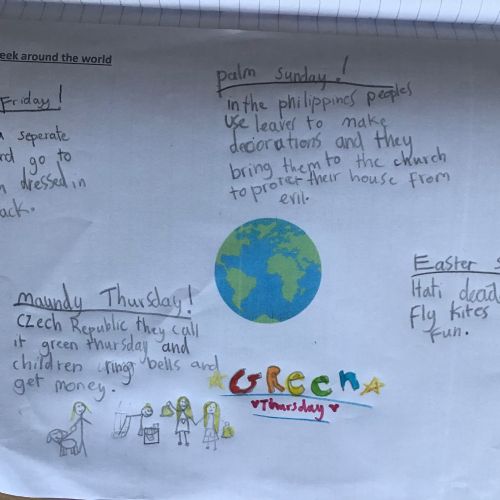 eek around the world
Friday!
seperate
go to
dressed in
ack.
palm Sunday!
In the philippines peoples
use leaves to make
decorations and they
bring them to the church
to protect their house from
evil.
Maundy Thursday!
Czech Republic they call
it green thursday and
children ring bells and
get money.
GREEn
Thursday
Easter S
Hati dead
Fly kites
fun.